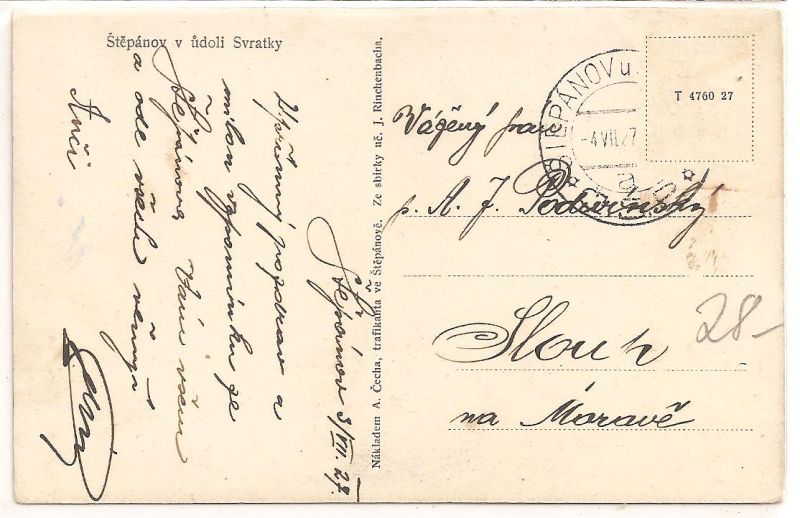 Štěpánov v údolí Svratky
Štěpánov 3/VII. 27.
Upřímný pozdrav a
milou vzpomínku ze
Štěpánova Vám všem
a ode všech venuji
Anči
Nákladem A. Čecha, trafikanta ve Štěpánově. Ze sbírky uč. J. Rinchenbacha.
ŠTĚPÁNOV u
-4 VII 27
a
T 4760 27
Vážený pan
p. A. J. Podivínský
Slouh
na Moravě
28-